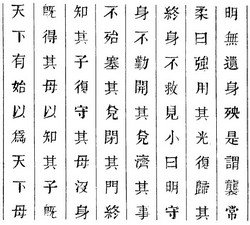 天下有始以爲天下母
旣得其母以知其子旣
知其子復守其母沒身
不殆塞其兌閉其門終
身不勤開其兌濟其事
終身不救見小曰明守
柔曰強用其光復歸其
明無遺身殃是謂襲常